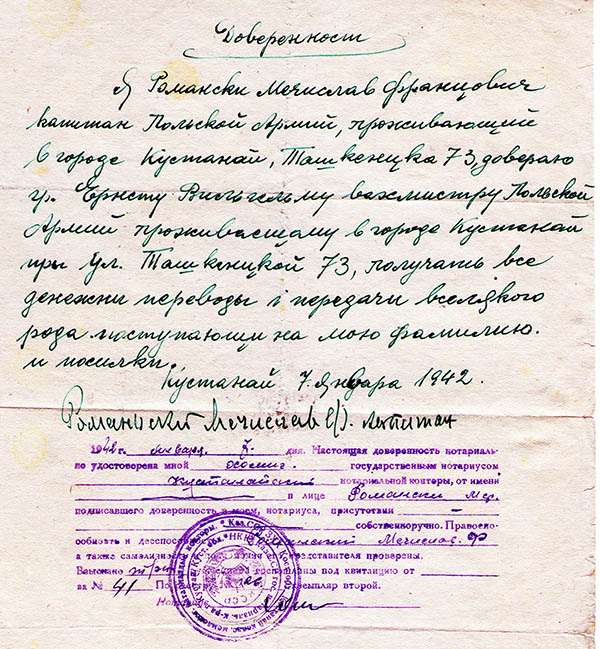 Доверенност
Я Романски Мечислав Францович
капитан Польской Армий, проживающий
в городе Кустанай, Ташкенцка 73, довераю
гр. Ернсту Вильгельму вахмистру Польской
Армий проживаещому в городе Кустанай
при Ул. Ташкенцкой 73, получать все
денежни переводы и передачи вселякого
рода поступающи на мою фамилию.
и посилки.
Кустанай 7. января 1942.
Романьский Мечислав капитан
1942 г. января 7. дня. Настоящая доверенность нотариаль-
но удостоверена мной государственным нотариусом
Кустанайской нотариальной конторы, от имени
в лице Романски М.Ф.
подписавшего доверенность в моем, нотариуса, присутствии
собственноручно. Правоспо-
собность и дееспособ Мечислав Ф
а также самоличность представителя проверены.
Взыскано три под квитанцию от
за № 41 экземпляр второй.